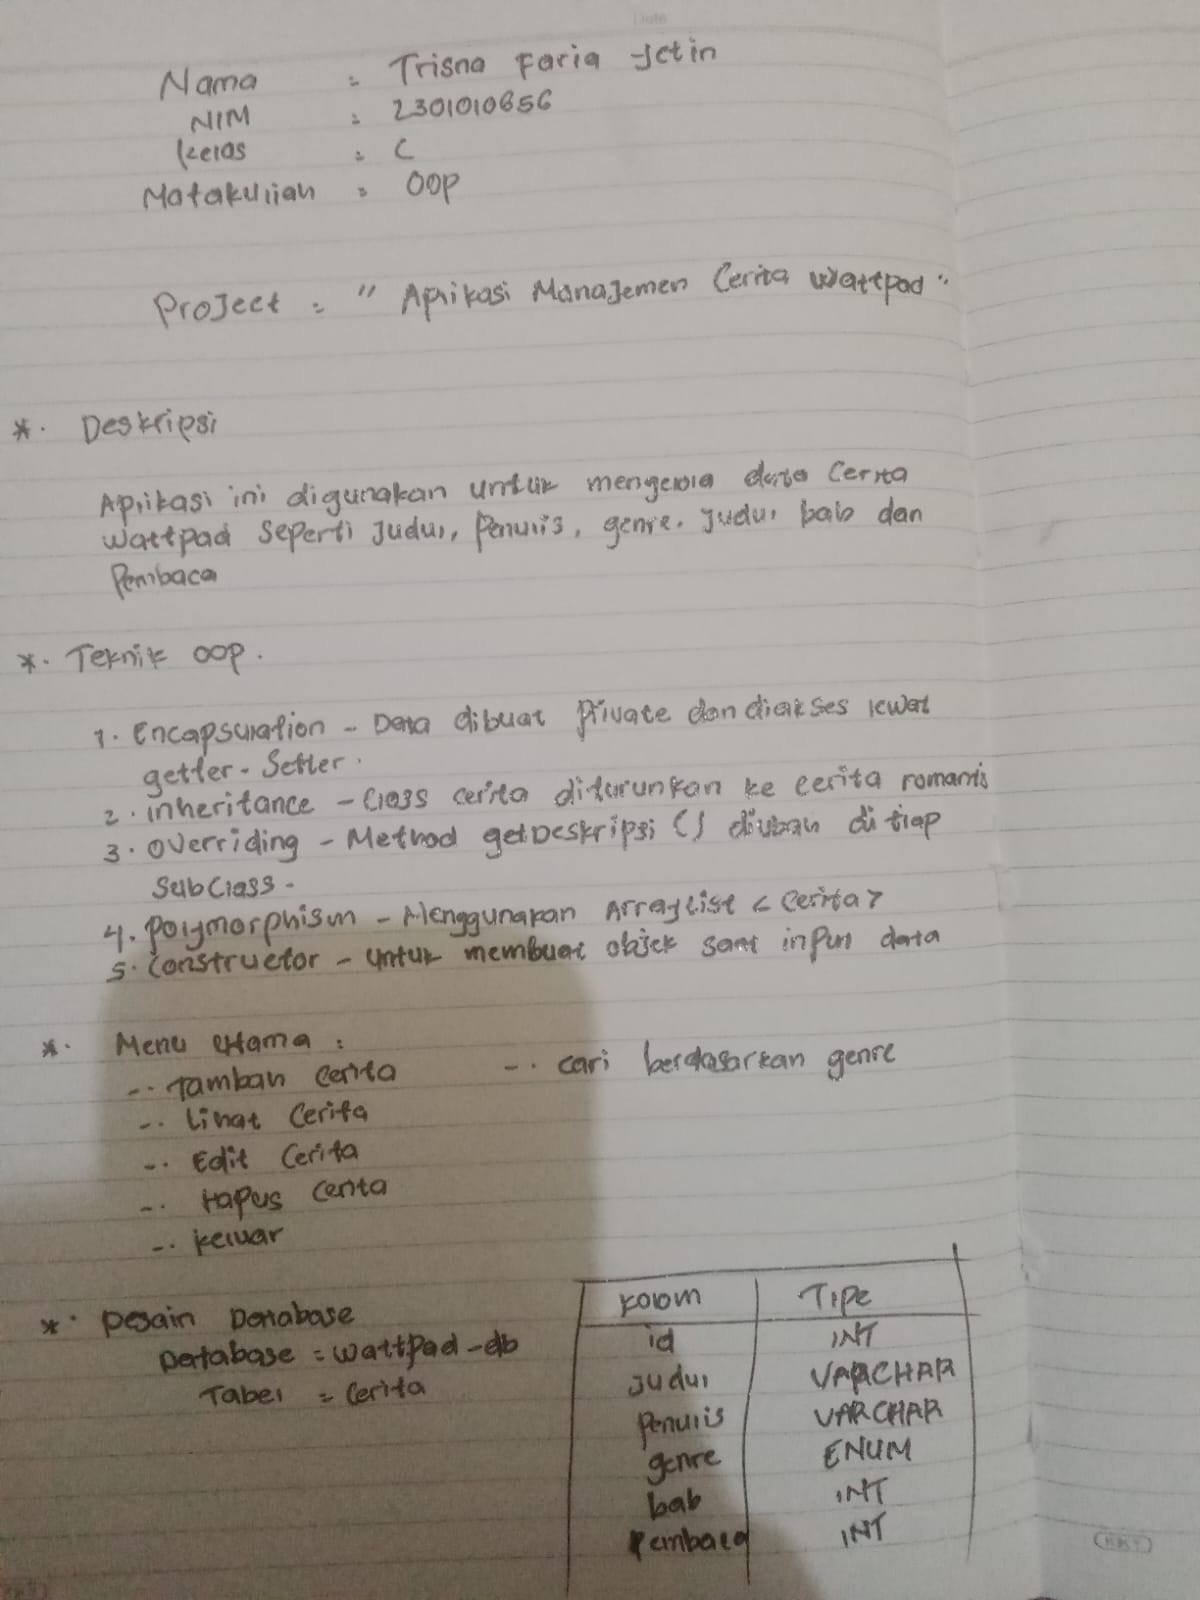 Date
Nama : Trisna Faria Jetin
NIM : 2301010656
Kelas : C
Matakuliah : OOP
Project : " Aplikasi Manajemen Cerita Wattpad "
*. Deskripsi
Aplikasi ini digunakan untuk mengelola data Cerita
Wattpad Seperti Judul, Penulis, genre. Judul bab dan
Pembaca
*. Teknik OOP.
1. Encapsulation - Data dibuat Private dan diakses lewat
getter - Setter.
2. inheritance - Class cerita diturunkan ke cerita romantis
3. Overriding - Method getDeskripsi () diubah di tiap
SubClass -
4. Polymorphism - Menggunakan ArrayList < Cerita >
5. Constructor - untuk membuat objek saat input data
*. Menu utama :
-. Tambah Cerita -. Cari berdasarkan genre
-. Lihat Cerita
-. Edit Cerita
-. Hapus Cerita
-. Keluar
*. Desain Database
Database = Wattpad - db
Tabel = Cerita
Kolom Tipe
id INT
Judul VARCHAR
Penulis VARCHAR
genre ENUM
bab INT
Pembaca INT
KKY